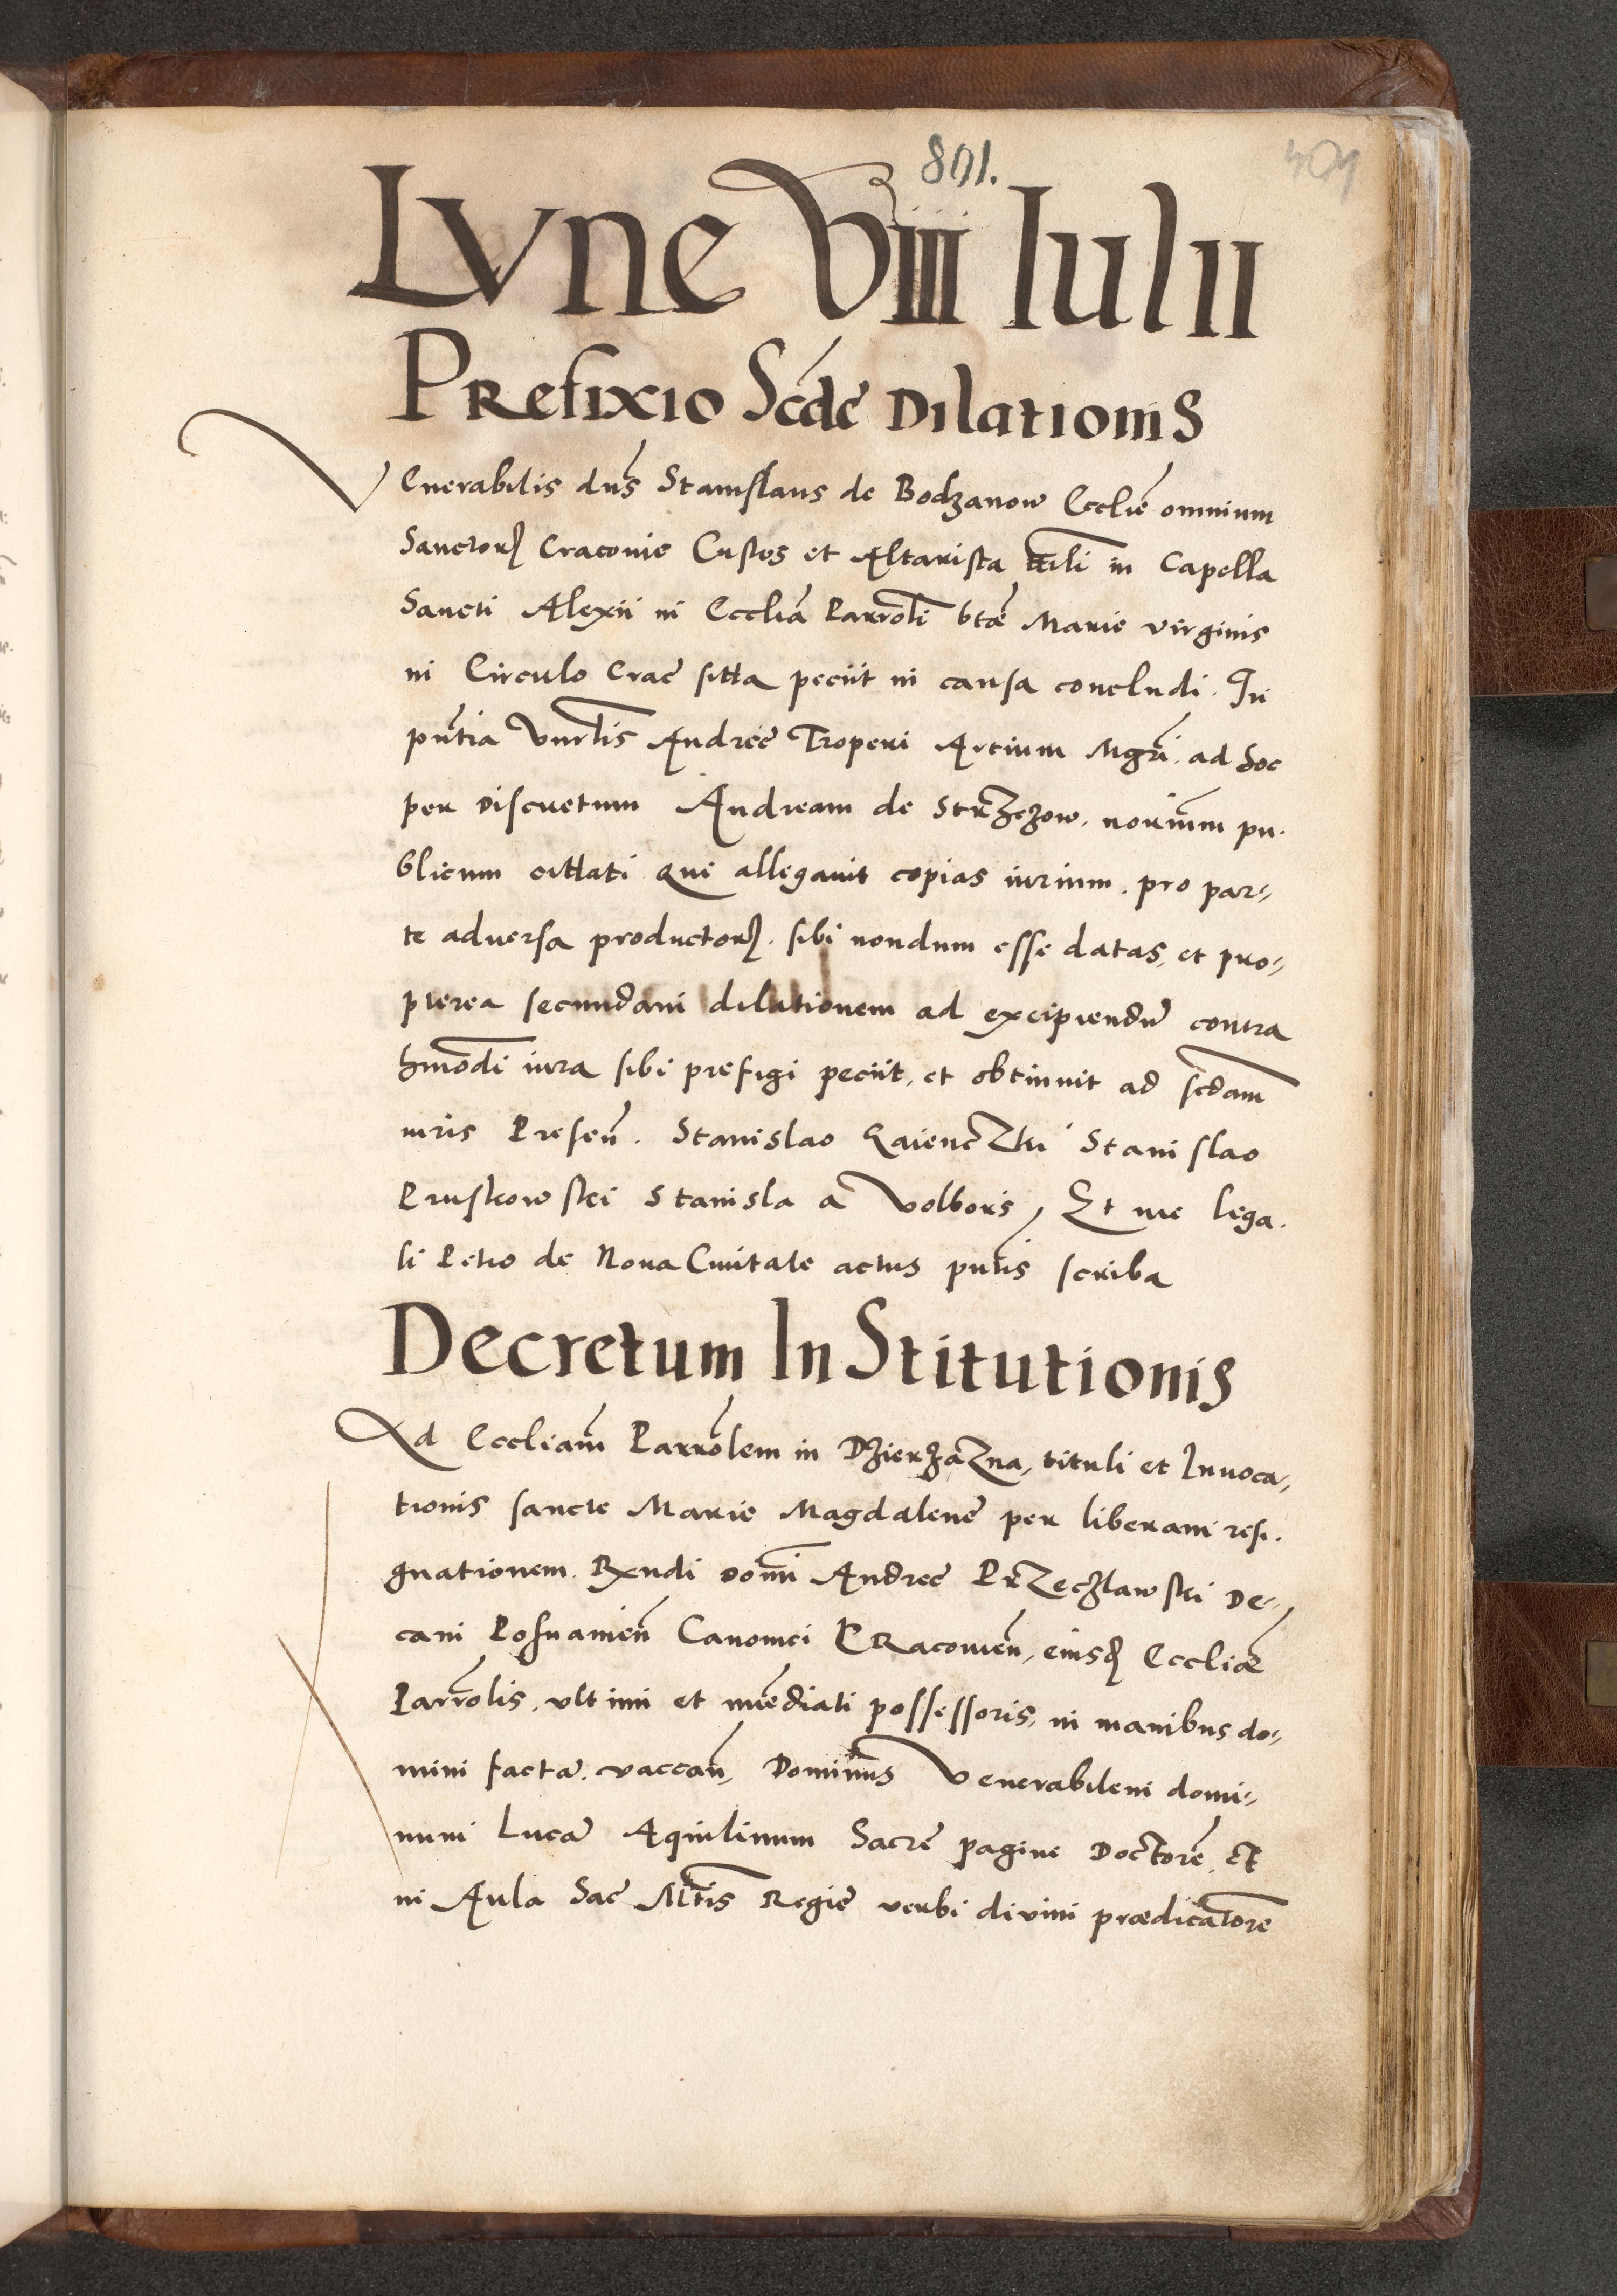 801.
401
Lvne Viii Iulii
Prefixio Scde Dilationis
Venerabilis dns Stanislaus de Bodzanow Ecclie omnium
Sanctorꝝ Cracovie Custos et Altarista ttli in Capella
Sancti Alexii in Ecclia Parrōli bte Marie virginis
in Circulo Crac sitta peciit in causa concludi. In
pntia Vnrlis Andree Troperi Artium Mgri. ad hoc
per Discretum Andream de StrZeZow. norium pu.
blicum cittati. Qui allegavit copias iurium. pro par-
te adversa productorꝝ. sibi nondum esse datas, et pro-
pterea secundam dilationem ad excipiendū contra
hmōdi iura sibi prefigi peciit, et obtinuit ad scdam
iuris Presen. Stanislao Stanislao
Pruskowski Stanisla a Volboris, Et me lega.
li Petro de Nova Civitate actus pntis scriba
Decretum InStitutionis
Ad Eccliam Parrōlem in DzierZaZna, tituli et Invoca-
tionis sancte Marie Magdalene per liberam resi.
gnationem. Rxndi domi Andree PrZeczlawski De-
cani Posnanien Canonici CRacovien, eiusꝫ Ecclie
Parrōlis, ultimi et imediati possessoris, in manibus do-
mini facta. vaccan, Dominus Venerabilem domi-
num Lucā Aquilinum Sacre pagine Doctore, et
in Aula Sac Mttis Regie verbi divini prædicatore